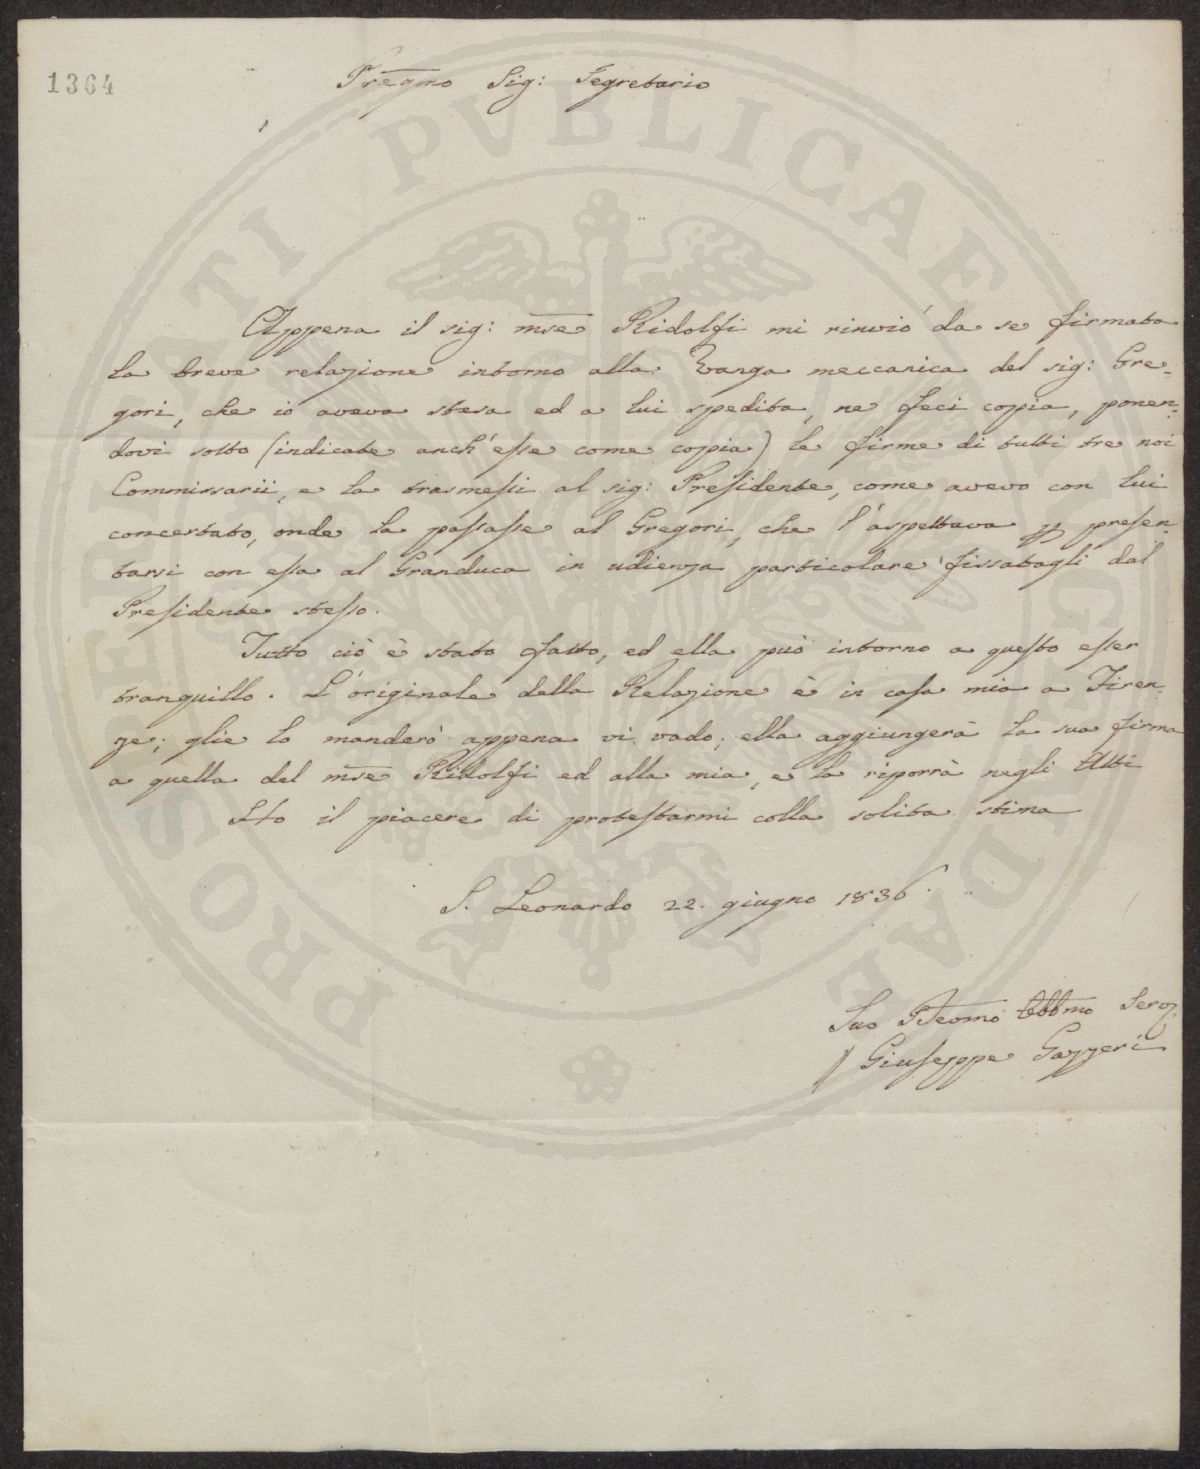 1364
Pregmo Sig: Segretario
Appena il sig: mse Ridolfi mi rinviò da se firmata
la breve relazione intorno alla Vanga meccanica del sig: Gre-
gori, che io aveva stesa ed a lui spedita, ne feci copia, ponen-
dovi sotto (indicate anch'esse come copia) le firme di tutti tre noi
Commissarii, e la trasmessi al sig: Presidente, come avevo con lui
concertato, onde la passasse al Gregori, che l'aspettava p presen-
tarsi con essa al Granduca in udienza particolare fissatagli dal
Presidente stesso.
Tutto ciò è stato fatto, ed ella può intorno a questo esser
tranquillo. L'originale della Relazione è in casa mia a Firen-
ze; glie lo manderò appena vi vado; ella aggiungerà la sua firma
a quella del mse Ridolfi ed alla mia, e la riporrà negli Atti
Ho il piacere di protestarmi colla solita stima
S. Leonardo 22. giugno 1836.
Suo Devmo Obbmo Serv.
Giuseppe Gazzeri
PROSPERITATI PVBLICAE AVGENDAE